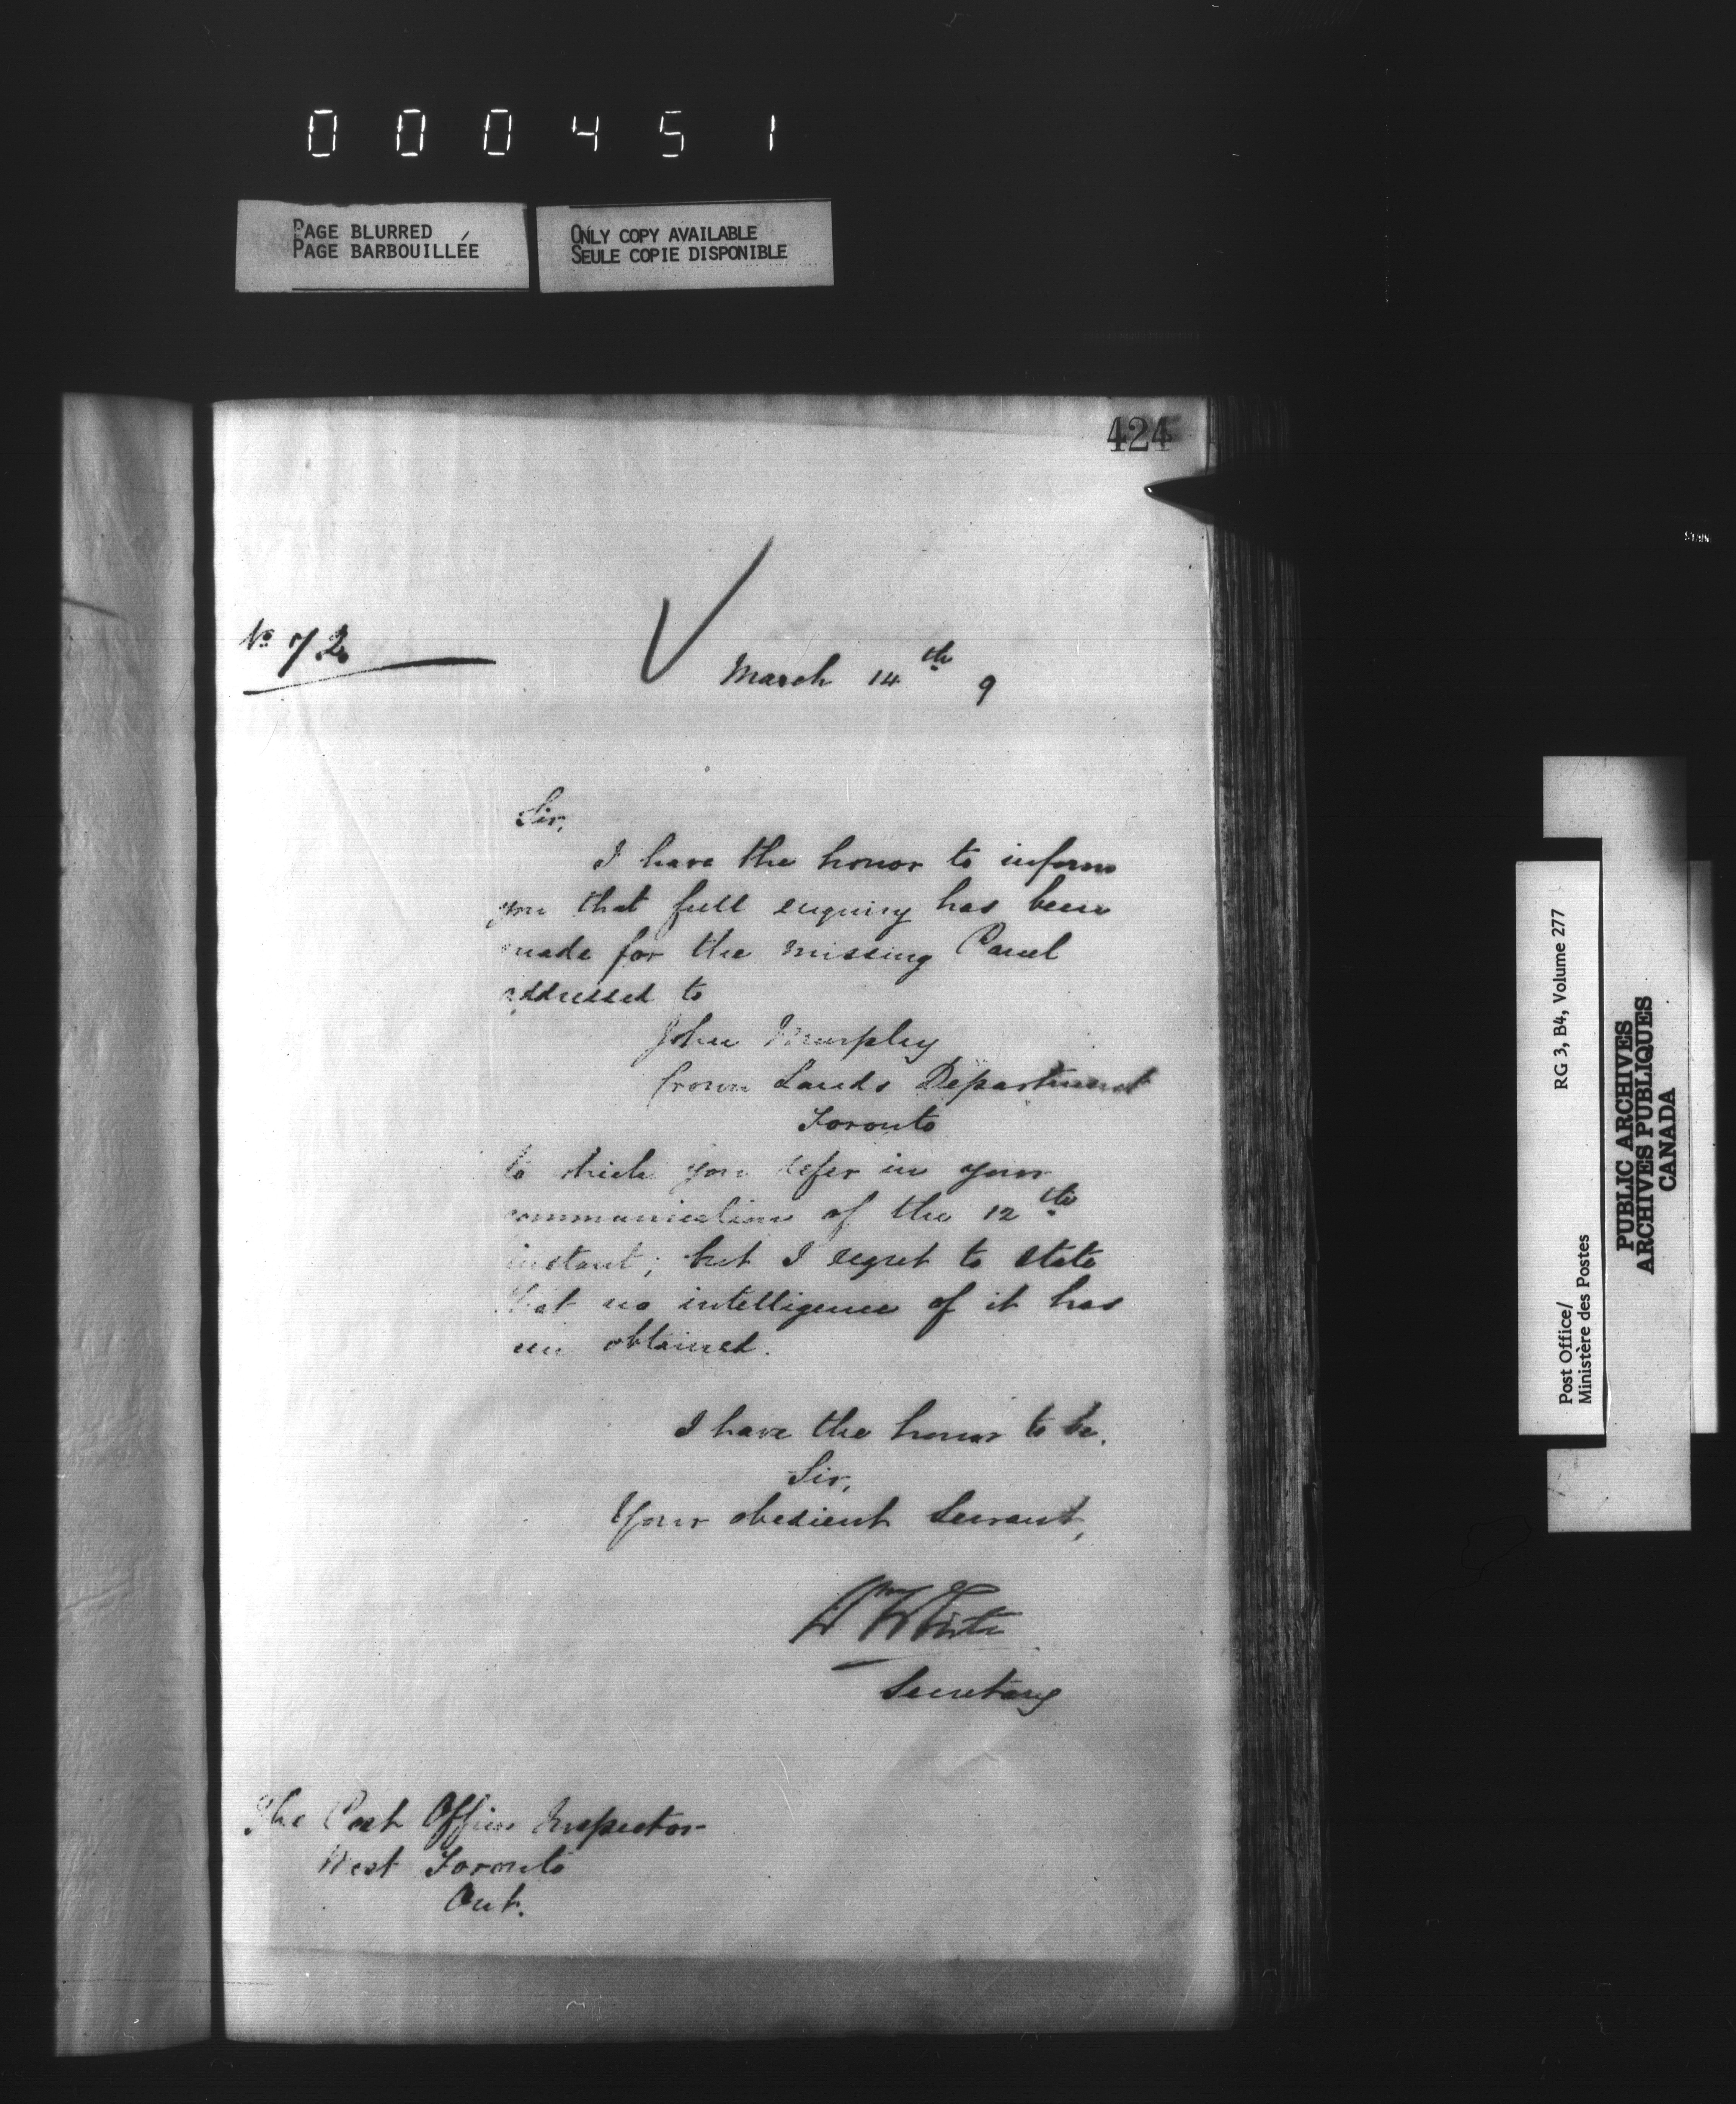 000451
PAGE BLURRED
PAGE BARBOUILLÉE
ONLY COPY AVAILABLE
SEULE COPIE DISPONIBLE
424
No 72
March 14th 9
Sir,
I have the honor to inform
you that full enquiry has been
made for the missing Parcel
addressed to
John Murphy
Crown Lands Department
Toronto
to which you refer in your
communication of the 12th
instant; but I regret to state
that no intelligence of it has
een obtained.
I have the honor to be.
Sir,
Your obedient Servant,
Wm White
Secretary
The Post Office Inspector
West Toronto
Ont.
Post Office/
Ministère des Postes
RG 3, B4, Volume 277
PUBLIC ARCHIVES
ARCHIVES PUBLIQUES
CANADA